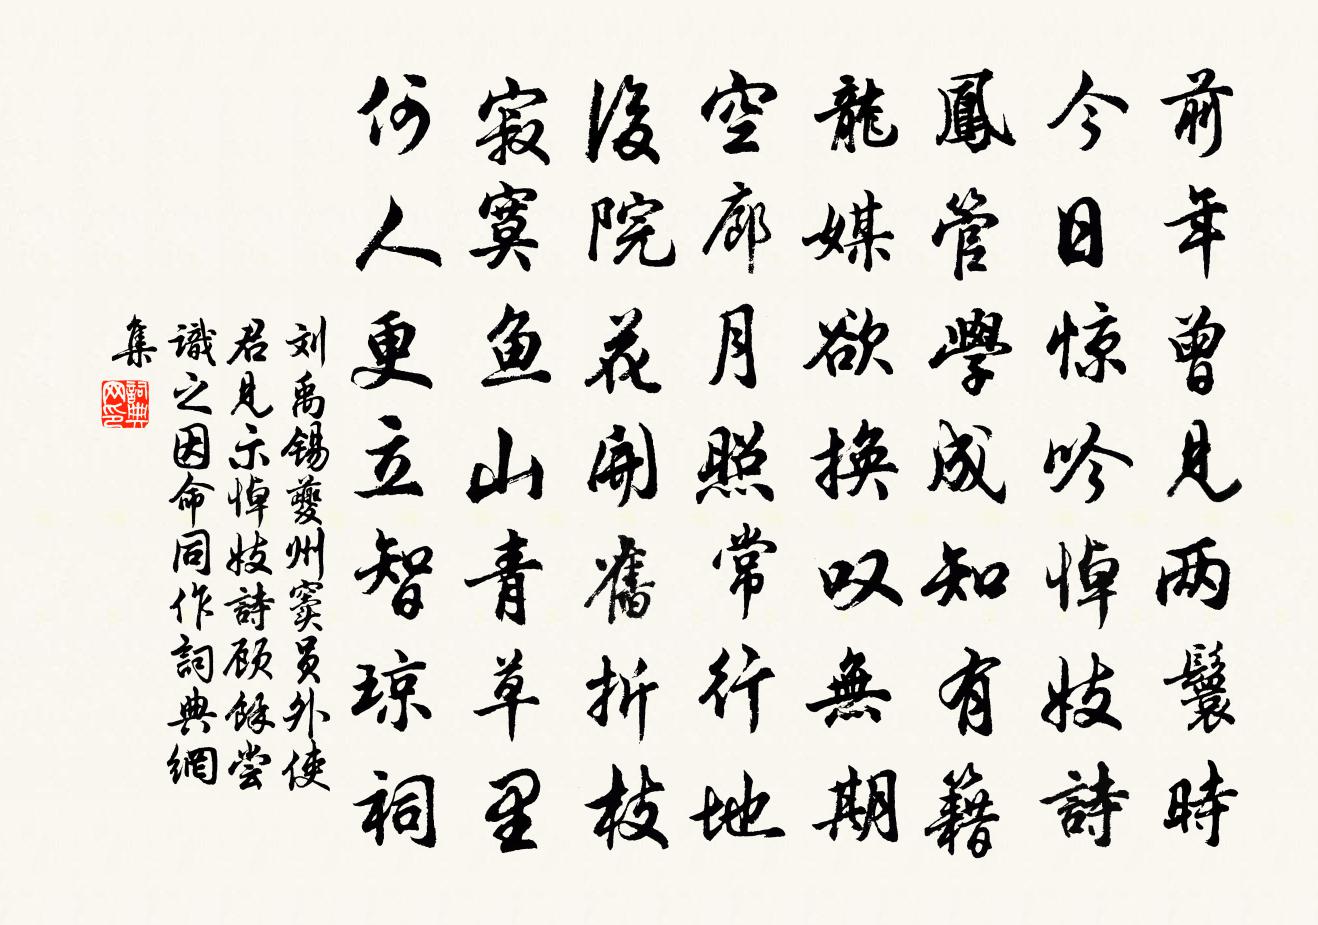 前年曾見两鬟時
今日惊吟悼妓詩
鳳管學成知有籍
龍媒欲换叹無期
空廊月照常行地
後院花開舊折枝
寂寞鱼山青草里
何人更立智琼祠
刘禹锡夔州窦员外使
君見示悼妓詩顾餘尝
識之因命同作詞典網
集
詞典网印